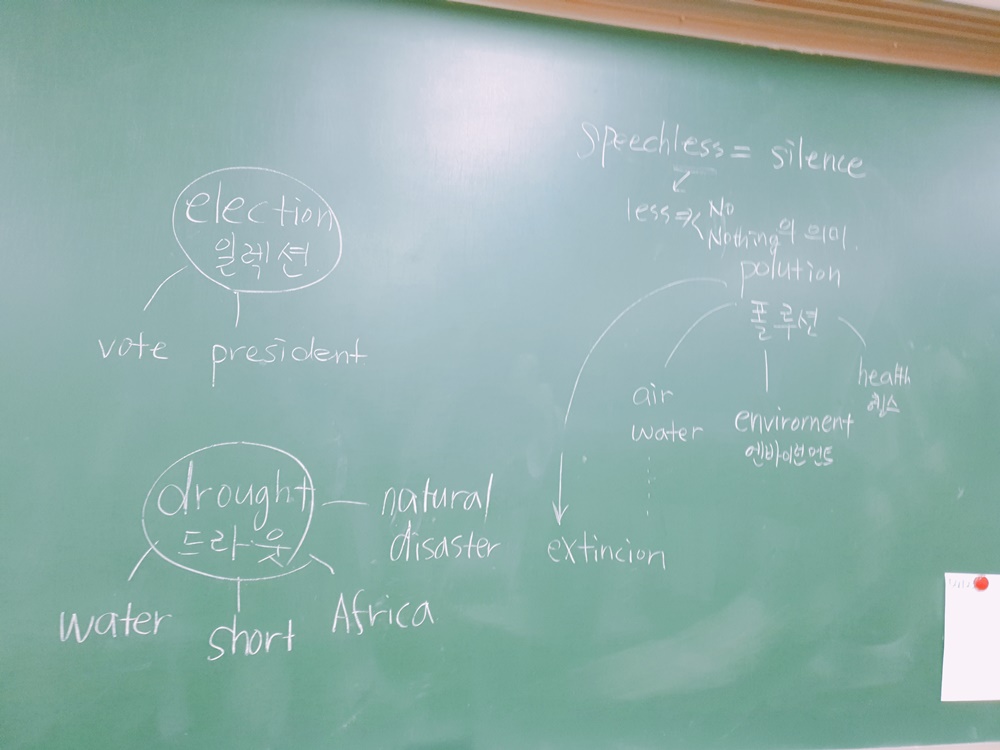 election
일렉션
vote president
drought
드라웃
natural
disaster
water short Africa
speechless = silence
less => No
Nothing의 의미.
polution
폴루션
air
water
envirornent
엔바이런먼트
health
헬스
extincion